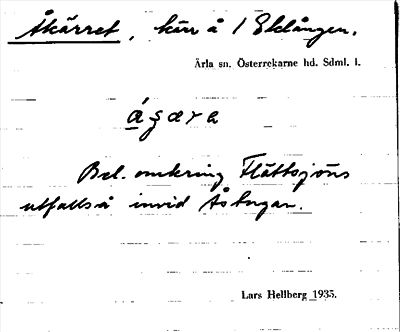 Åkärret, kärr å 1 Eklången.
Ärla sn. Österrekarne hd. Sdml. l.
Bel. omkring Flättsjöns
utfallså invid Åstugan.
Lars Hellberg 1935.